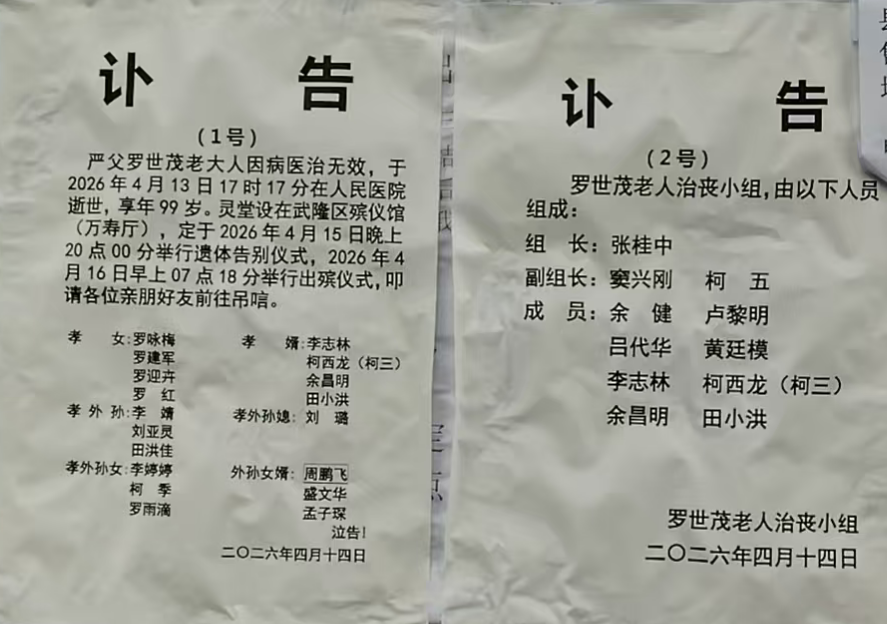 讣 告
(1号)
严父罗世茂老大人因病医治无效，于
2026年4月13日17时17分在人民医院
逝世，享年99岁。灵堂设在武隆区殡仪馆
（万寿厅），定于2026年4月15日晚上
20点00分举行遗体告别仪式，2026年4
月16日早上07点18分举行出殡仪式，叩
请各位亲朋好友前往吊唁。
孝 女:罗咏梅 孝 婿:李志林
罗建军 柯西龙（柯三）
罗迎卉 余昌明
罗 红 田小洪
孝外孙:李 靖 孝外孙媳:刘 璐
刘亚灵
田洪佳
孝外孙女:李婷婷 外孙女婿:周鹏飞
柯 季 盛文华
罗雨滴 孟子琛
泣告!
二〇二六年四月十四日
讣 告
(2号)
罗世茂老人治丧小组,由以下人员
组成:
组 长:张桂中
副组长:窦兴刚 柯 五
成 员:余 健 卢黎明
吕代华 黄廷模
李志林 柯西龙（柯三）
余昌明 田小洪
罗世茂老人治丧小组
二〇二六年四月十四日